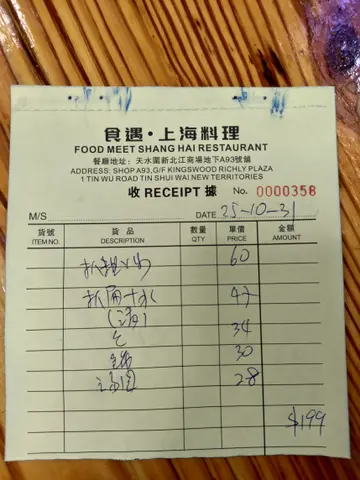 食遇·上海料理
FOOD MEET SHANG HAI RESTAURANT
餐廳地址: 天水圍新北江商場地下A93號舖
ADDRESS: SHOP A93,G/F KINGSWOOD RICHLY PLAZA
1 TIN WU ROAD TIN SHUI WAI,NEW TERRITORIES
收 RECEIPT 據 No. 0000358
M/S DATE 25-10-31
貨號 貨品 數量 單價 金額
ITEM NO. DESCRIPTION QTY PRICE AMOUNT
60
47
34
30
28
$199